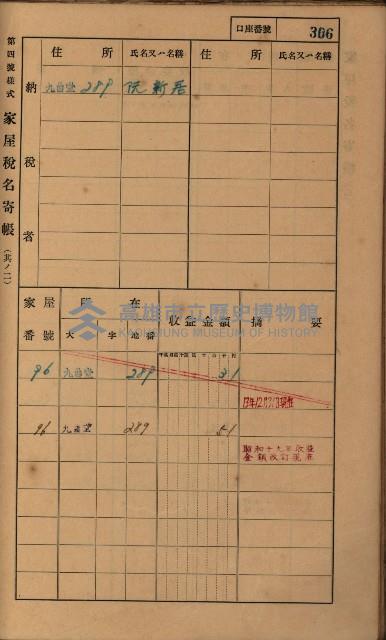 口座番號 306
第四號樣式 家屋稅名寄帳 (其ノ二)
納稅者
住所 氏名又ハ名稱 住所 氏名又ハ名稱
九曲堂 289 阮新居
家屋番號 所在 收益金額 摘要
大字 地番
高雄市立歷史博物館
KAOHSIUNG MUSEUM OF HISTORY
96 九曲堂 289 31
96 九曲堂 289 51
昭和十九年收益
金額改訂現在